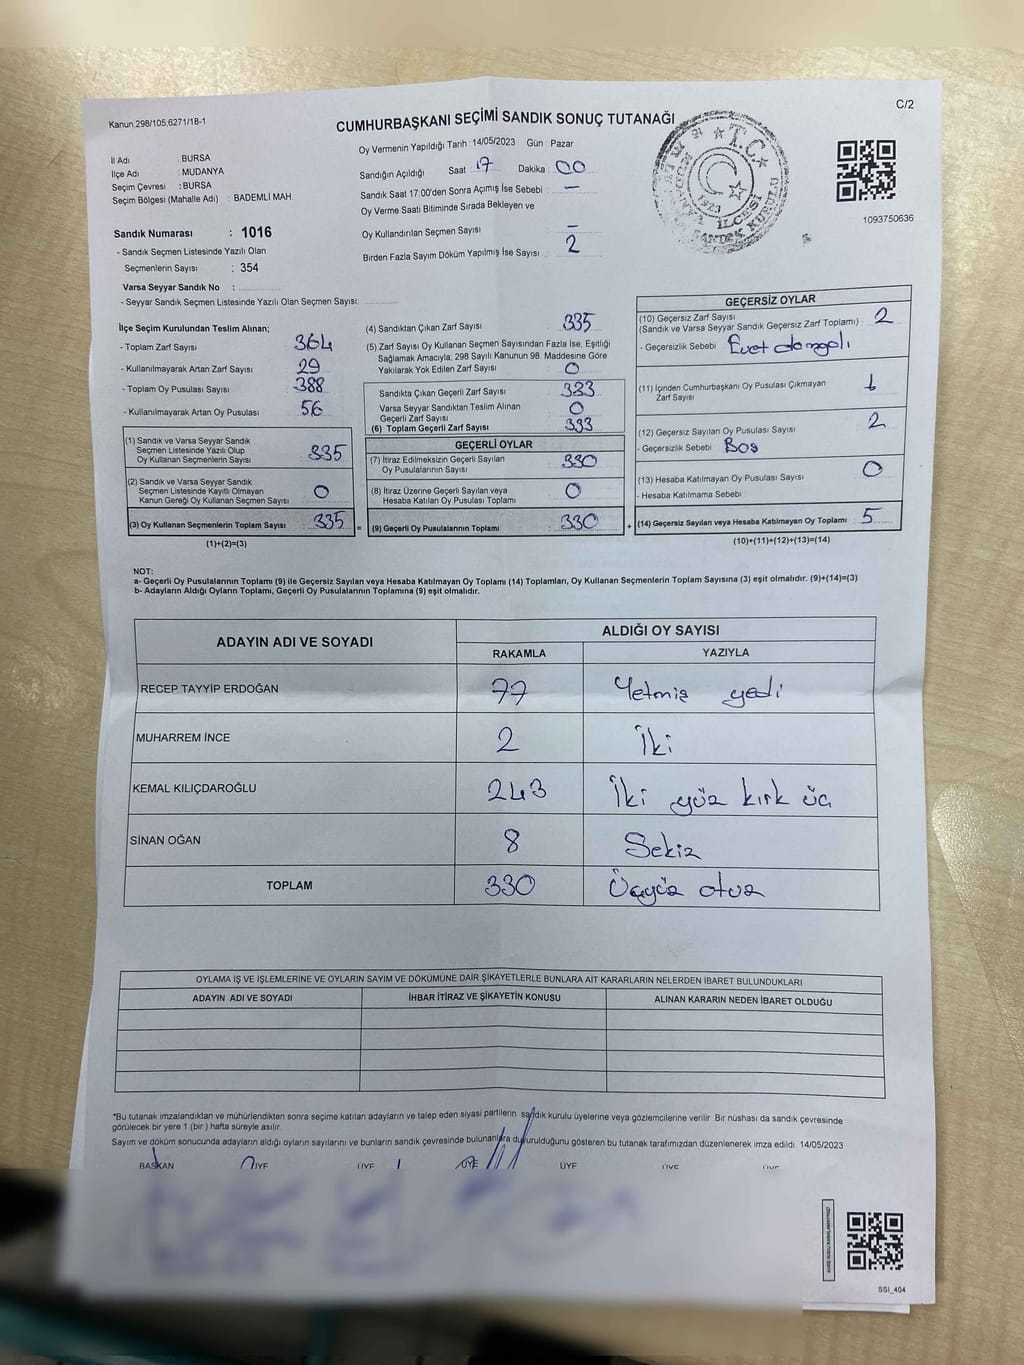 C/2
Kanun,298/105,6271/18-1
CUMHURBAŞKANI SEÇİMİ SANDIK SONUÇ TUTANAĞI
Oy Vermenin Yapıldığı Tarih 14/05/2023 Gün : Pazar
İl Adı : BURSA
İlçe Adı : MUDANYA
Seçim Çevresi : BURSA
Seçim Bölgesi (Mahalle Adı) : BADEMLİ MAH
Sandığın Açıldığı Saat : 17 Dakika : 00
Sandık Saat 17:00'den Sonra Açımış İse Sebebi : —
Oy Verme Saati Bitiminde Sırada Bekleyen ve
Oy Kullandırılan Seçmen Sayısı : —
Birden Fazla Sayım Döküm Yapılmış İse Sayısı : 2
T.C.
1923
İLÇESİ
SANDIK KURULU
1093750636
Sandık Numarası : 1016
- Sandık Seçmen Listesinde Yazılı Olan
Seçmenlerin Sayısı : 354
Varsa Seyyar Sandık No :
- Seyyar Sandık Seçmen Listesinde Yazılı Olan Seçmen Sayısı:
İlçe Seçim Kurulundan Teslim Alınan;
- Toplam Zarf Sayısı : 364
- Kullanılmayarak Artan Zarf Sayısı : 29
- Toplam Oy Pusulası Sayısı : 388
- Kullanılmayarak Artan Oy Pusulası : 56
(1) Sandık ve Varsa Seyyar Sandık
Seçmen Listesinde Yazılı Olup
Oy Kullanan Seçmenlerin Sayısı : 335
(2) Sandık ve Varsa Seyyar Sandık
Seçmen Listesinde Kayıtlı Olmayan
Kanun Gereği Oy Kullanan Seçmen Sayısı : 0
(3) Oy Kullanan Seçmenlerin Toplam Sayısı : 335 =
(1)+(2)=(3)
(4) Sandıktan Çıkan Zarf Sayısı : 335
(5) Zarf Sayısı Oy Kullanan Seçmen Sayısından Fazla İse, Eşitliği
Sağlamak Amacıyla; 298 Sayılı Kanunun 98. Maddesine Göre
Yakılarak Yok Edilen Zarf Sayısı : 0
Sandıkta Çıkan Geçerli Zarf Sayısı : 333
Varsa Seyyar Sandıktan Teslim Alınan
Geçerli Zarf Sayısı : 0
(6) Toplam Geçerli Zarf Sayısı : 333
GEÇERLİ OYLAR
(7) İtiraz Edilmeksizin Geçerli Sayılan
Oy Pusulalarının Sayısı : 330
(8) İtiraz Üzerine Geçerli Sayılan veya
Hesaba Katılan Oy Pusulası Toplamı : 0
(9) Geçerli Oy Pusulalarının Toplamı : 330 +
GEÇERSİZ OYLAR
(10) Geçersiz Zarf Sayısı
(Sandık ve Varsa Seyyar Sandık Geçersiz Zarf Toplamı) : 2
- Geçersizlik Sebebi : Evet damgalı
(11) İçinden Cumhurbaşkanı Oy Pusulası Çıkmayan
Zarf Sayısı : 1
(12) Geçersiz Sayılan Oy Pusulası Sayısı : 2
- Geçersizlik Sebebi : Boş
(13) Hesaba Katılmayan Oy Pusulası Sayısı : 0
- Hesaba Katılmama Sebebi :
(14) Geçersiz Sayılan veya Hesaba Katılmayan Oy Toplamı : 5
(10)+(11)+(12)+(13)=(14)
NOT:
a- Geçerli Oy Pusulalarının Toplamı (9) ile Geçersiz Sayılan veya Hesaba Katılmayan Oy Toplamı (14) Toplamları, Oy Kullanan Seçmenlerin Toplam Sayısına (3) eşit olmalıdır. (9)+(14)=(3)
b- Adayların Aldığı Oyların Toplamı, Geçerli Oy Pusulalarının Toplamına (9) eşit olmalıdır.
ADAYIN ADI VE SOYADI ALDIĞI OY SAYISI
RAKAMLA YAZIYLA
RECEP TAYYİP ERDOĞAN 77 Yetmiş yedi
MUHARREM İNCE 2 İki
KEMAL KILIÇDAROĞLU 243 İki yüz kırk üç
SİNAN OĞAN 8 Sekiz
TOPLAM 330 Üçyüz otuz
OYLAMA İŞ VE İŞLEMLERİNE VE OYLARIN SAYIM VE DÖKÜMÜNE DAİR ŞİKAYETLERLE BUNLARA AİT KARARLARIN NELERDEN İBARET BULUNDUKLARI
ADAYIN ADI VE SOYADI İHBAR İTİRAZ VE ŞİKAYETİN KONUSU ALINAN KARARIN NEDEN İBARET OLDUĞU
*Bu tutanak imzalandıktan ve mühürlendikten sonra seçime katılan adayların ve talep eden siyasi partilerin sandık kurulu üyelerine veya gözlemcilerine verilir. Bir nüshası da sandık çevresinde
görülecek bir yere 1 (bir) hafta süreyle asılır.
Sayım ve döküm sonucunda adayların aldığı oyların sayılarını ve bunların sandık çevresinde bulunanlara duyurulduğunu gösteren bu tutanak tarafımızdan düzenlenerek imza edildi. 14/05/2023
BAŞKAN ÜYE ÜYE ÜYE ÜYE ÜYE ÜYE
SSI_404